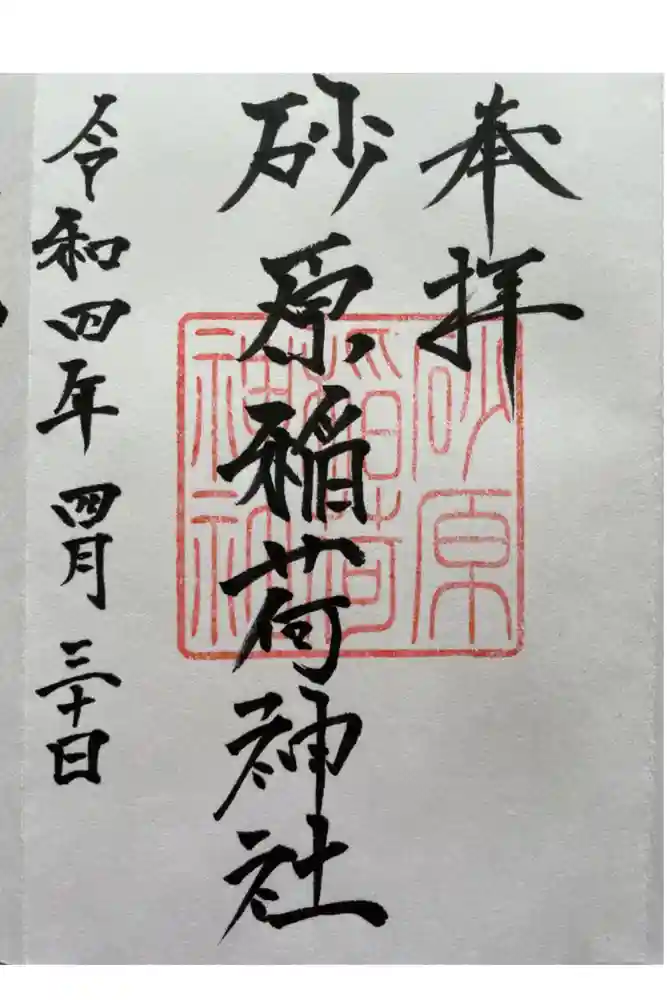 奉拝
砂原稲荷神社
砂原
稲荷
神社
令和四年四月三十日